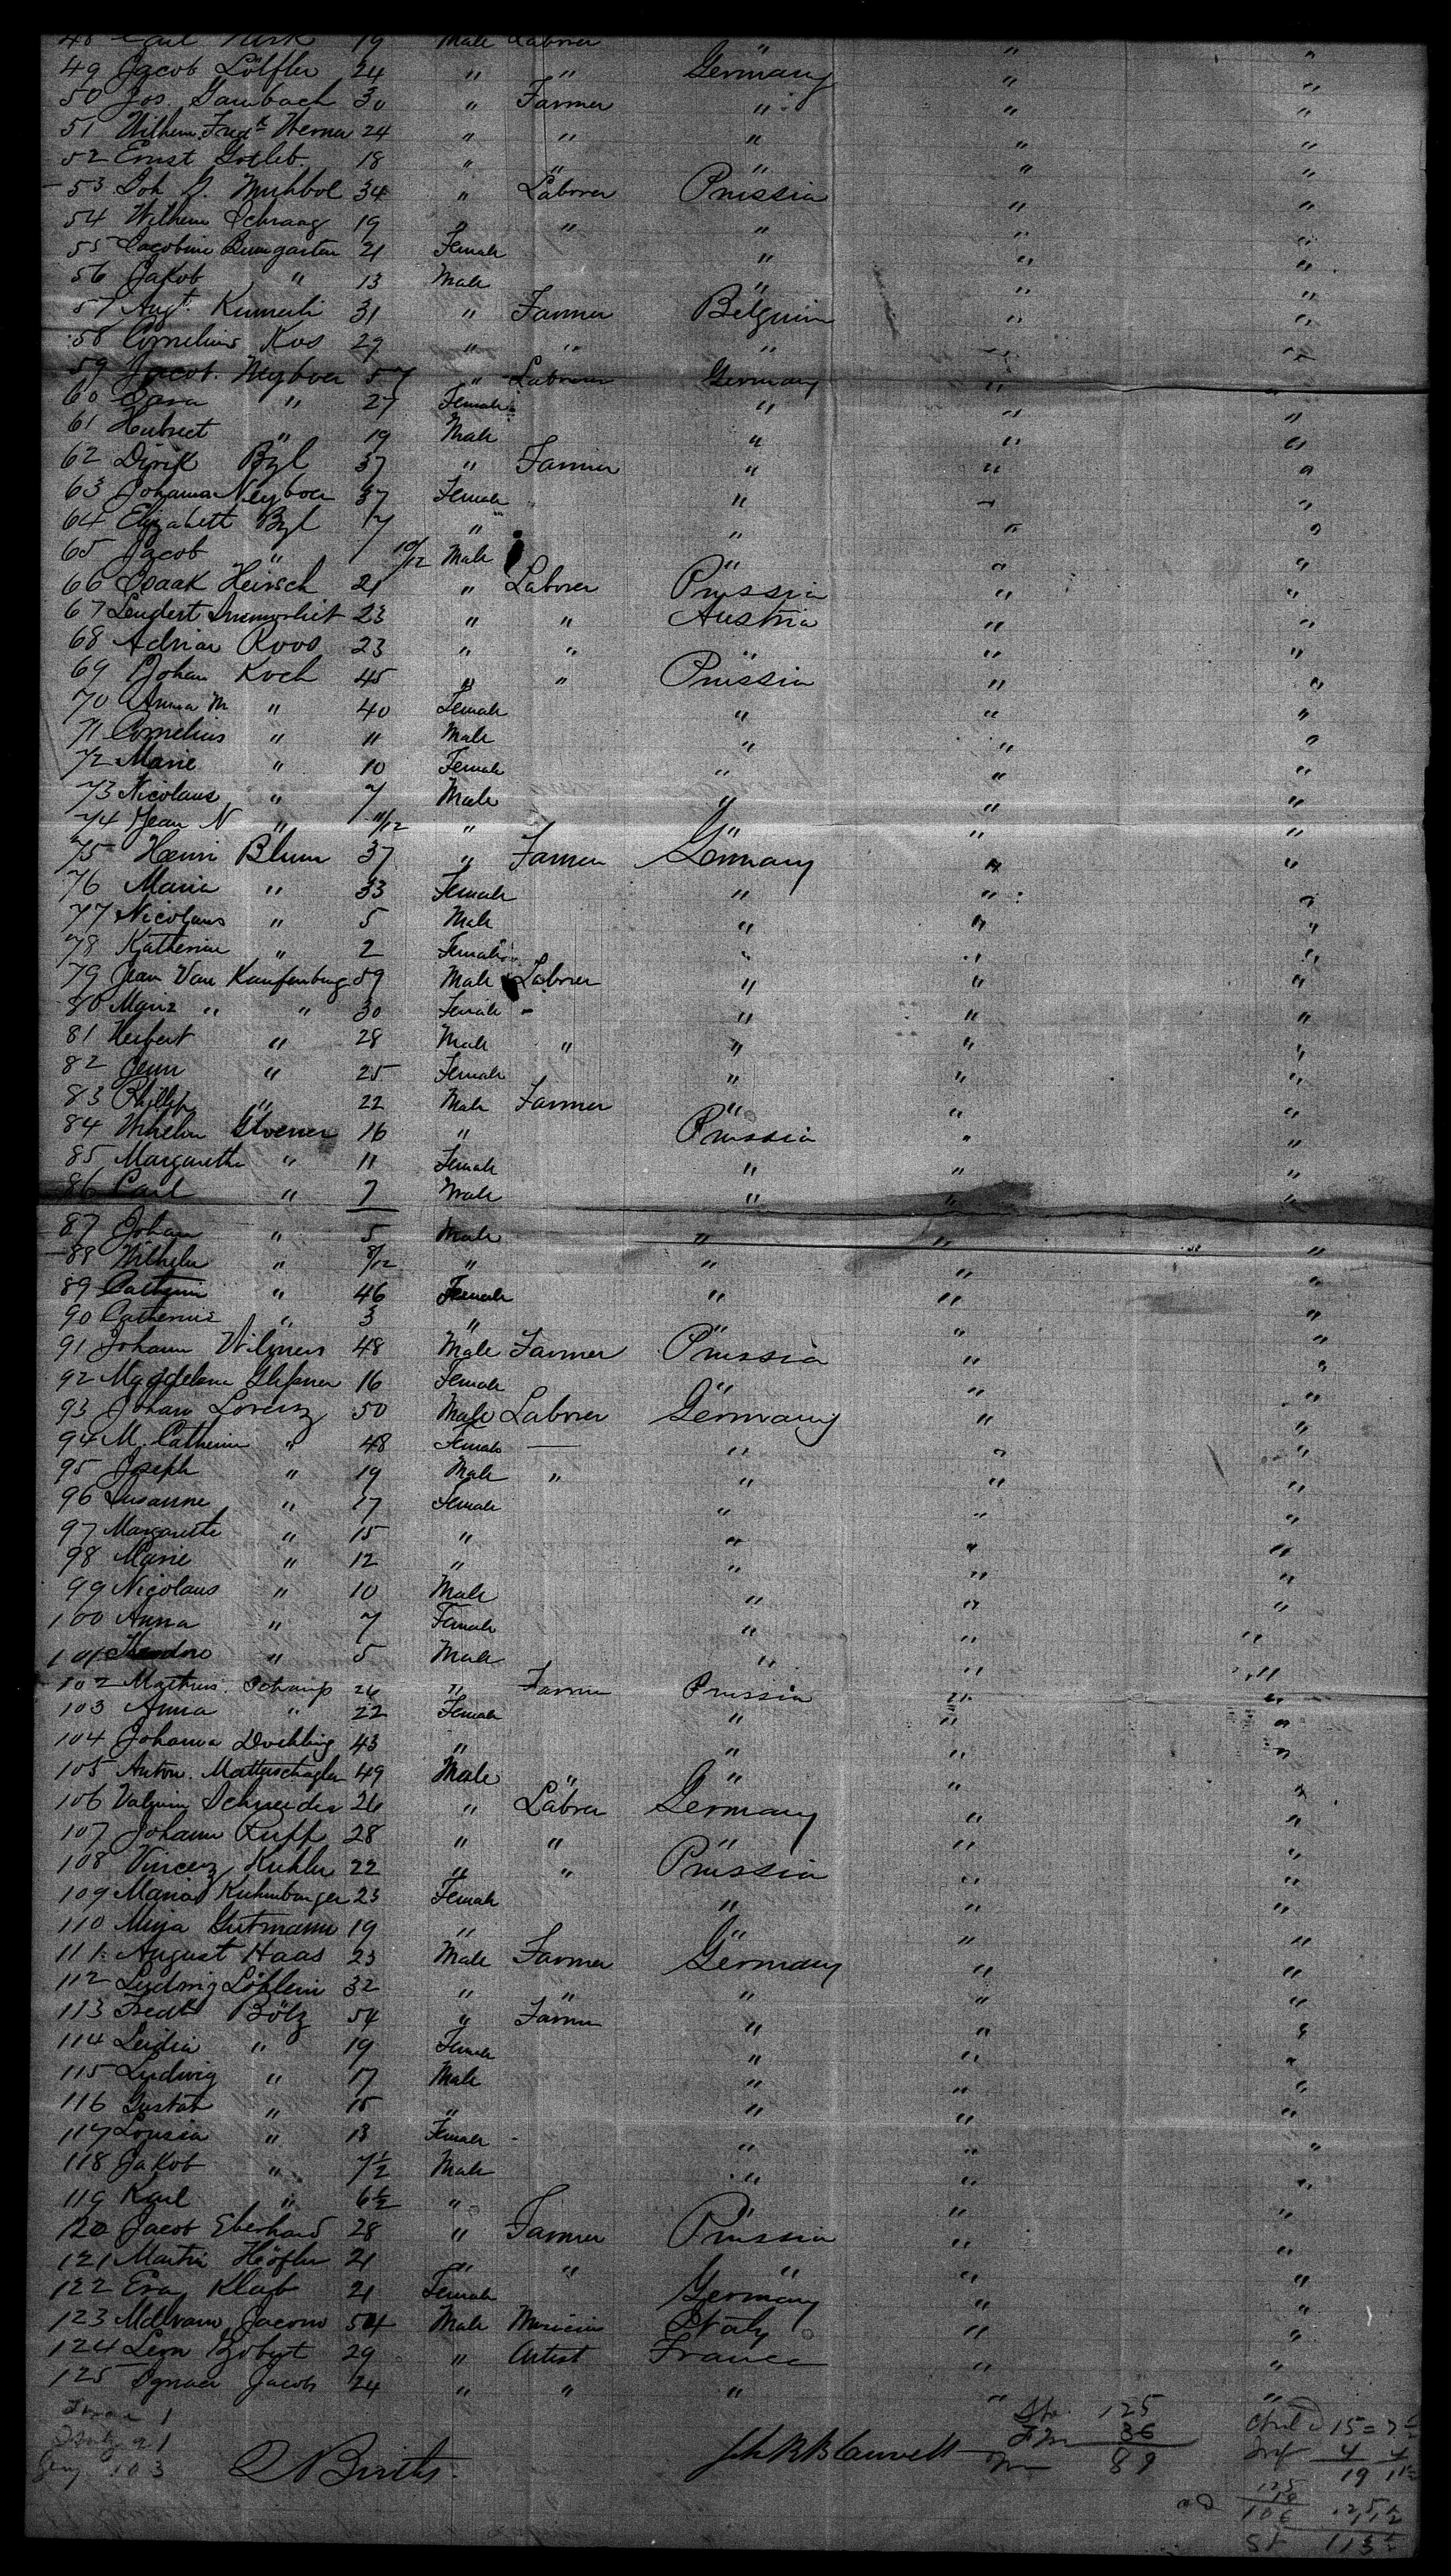 48 Carl 19 Male Laborer " "
49 Jacob Löffler 24 " " Germany " "
50 Jos. Gambach 30 " Farmer " " "
51 Wilhem Fredk Werner 24 " " " " "
52 Ernst Gotleb 18 " " " " "
53 Joh Muhbol 34 " Laborer Prussia " "
54 Wilhem Schraag 19 " " " "
55 Jacobine Bumgarten 21 Female " " "
56 Jakob " 13 Male " " "
57 Augt. Kummerli 31 " Farmer Belguim " "
58 Cornelius Kos 29 " " " " "
59 Jacob Meyboer 57 " Laborer Germany " "
60 Sara " 27 Female " " "
61 Hubrect " 19 Male " " "
62 Dirik Byl 37 " Farmer " " "
63 Johanna Neyboer 37 Female " " "
64 Elizabeth Byl 7 " " " "
65 Jacob " 10/12 Male " " "
66 Isaak Heirsch 21 " Laborer Prussia " "
67 Lendert 23 " " Austria " "
68 Adrian Roos 23 " " " " "
69 Johan Koch 45 " " Prussia " "
70 Anna M " 40 Female " " "
71 Cornelius " 11 Male " " "
72 Marie " 10 Female " " "
73 Nicolaus " 7 Male " " "
74 Jean N " 11/12 " " " "
75 Henri Blum 37 " Farmer Germany " "
76 Maria " 33 Female " " "
77 Nicolaus " 5 Male " " "
78 Katherine " 2 Female " " "
79 Jean Van Kaufenburg 59 Male Laborer " " "
80 " " 30 Female " " "
81 Herbert " 28 Male " " " "
82 Jean " 25 Female " " "
83 Phillip " 22 Male Farmer " " "
84 Wilhelm 16 " Prussia " "
85 Margaretha " 11 Female " " "
86 Carl " 7 Male " " "
87 Johan " 5 Male " " "
88 Wilhelm " 8/12 " " " "
89 " 46 Female " " "
90 Catherine " 3 " " " "
91 Johann Wilmers 48 Male Farmer Prussia " "
92 Magdelena 16 Female " " "
93 Johan Lorenz 50 Male Laborer Germany " "
94 M. Catherine " 48 Female — " " "
95 Joseph " 19 Male " " " "
96 Susanne " 17 Female " " "
97 Margarethe " 15 " " " "
98 Marie " 12 " " " "
99 Nicolaus " 10 Male " " "
100 Anna " 7 Female " " "
101 Theodore " 5 Male " " "
102 Mathias Schamp 26 " Farmer Prussia " "
103 Anna " 22 Female " " "
104 Johanna 43 " " " "
105 Anton 49 Male " " " "
106 Schneider 26 " Labrer Germany " "
107 Johann Rupp 28 " " " " "
108 Vincenz Kuhler 22 " " Prussia " "
109 Maria Kuhnburger 23 Female " " "
110 Gutmann 19 " " " "
111 August Haas 23 Male Farmer Germany " "
112 Ludwig Löhlein 32 " " " " "
113 Fredk Bölz 54 " Farmer " " "
114 Leidia " 19 Female " " "
115 Ludwig " 17 Male " " "
116 Gustav " 15 " " " "
117 Lousia " 13 Female " " "
118 Jakob " 7½ Male " " "
119 Karl " 6½ " " " "
120 Jacob Eberhard 28 " Farmer Prussia " "
121 Martin Höfler 21 " " " " "
122 Eva Klab 21 Female Germany " "
123 Jacomo 54 Male Musician Italy " "
124 Leon 29 " Artist France " "
125 Ignace Jacob 24 " " " " "
125
36
89
2 Births.
Jno R Blauvelt
15 = 7½
4 4
19 11½
106
113½